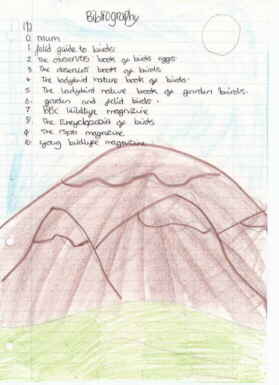 Bibliography
(1)
0. mum
1. feild guide to birds
2. The observers book of birds eggs
3. The observers book of birds
4. The ladybird nature book of birds.
5. The Ladybird nature book of garden birds.
6. garden and feild birds.
7. BBC wildlife magazine
8. The Encyclopedia of birds
9. The rspb magazine
10. young wildlife magazine